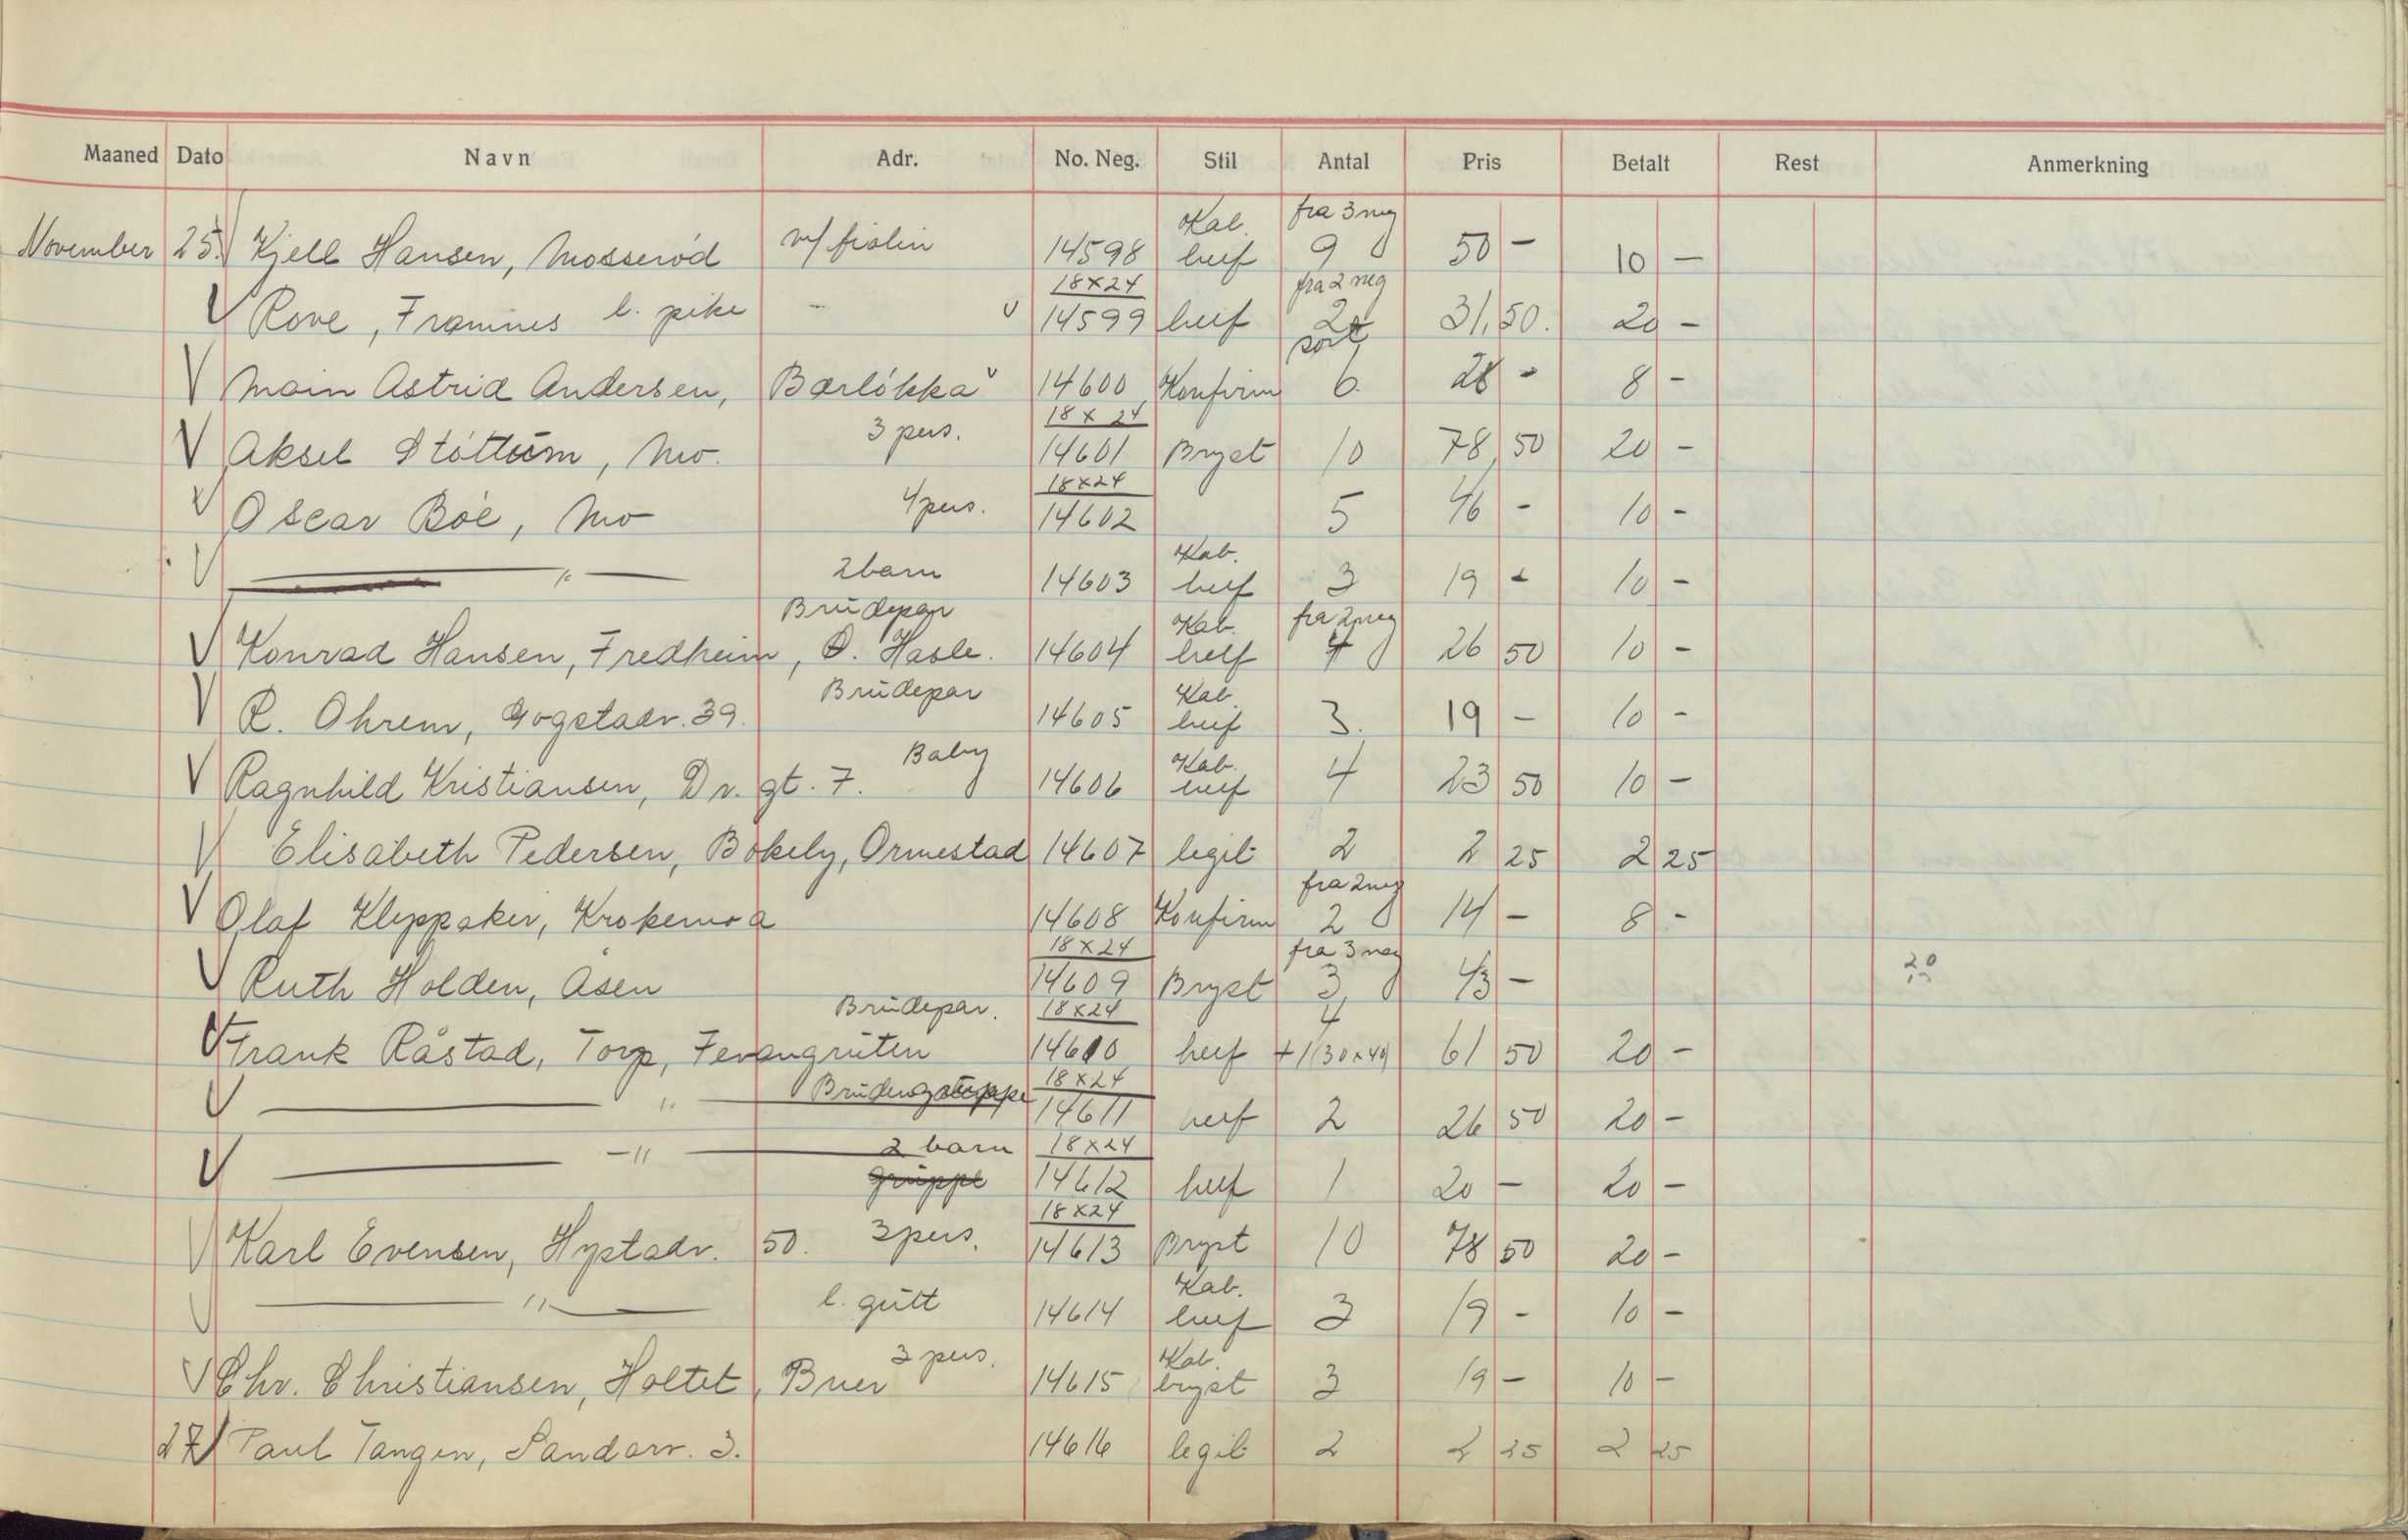 Maaned Dato Navn Adr. No. Neg. Stil Antal Pris Betalt Rest Anmerkning
Kab. fra 3 neg
November 25. Kjell Hansen, Mosserød m/ fiolin 14598 helf 9 50 - 10 -
18x24 fra 2 neg
V Rove, Framnes l. pike 14599 helf 2 31,50. 20 -
sort
V Astrid Andersen, Bærløkka 14600 Konfirm 6 28 - 8 -
3 pers. 18 x 24
V Aksel Støttum, Mo. 14601 Bryst 10 78,50 20 -
4 pers. 18x24
V Oscar Bøe, Mo 14602 5 46 - 10 -
Kab.
V — " — 2 barn 14603 helf 3 19 - 10 -
Brudepar Kab. fra 2 neg
V Konrad Hansen, Fredheim, Ø. Hasle. 14604 helf 4 26 50 10 -
Brudepar Kab.
V R. Ohrem, Gogstadv. 39. 14605 helf 3. 19 - 10 -
Baby Kab.
V Ragnhild Kristiansen, Dr. gt. 7. 14606 helf 4 23 50 10 -
V Elisabeth Pedersen, Bøkely, Ormestad 14607 legit 2 2 25 2 25
fra 2 neg
V Olaf Kleppaker, Krokemoa 14608 Konfirm 2 14 - 8 -
18x24 fra 3 neg 20
V Ruth Holden, Åsen 14609 Bryst 3 43 -
Brudepar. 18x24 4
V Frank Råstad, Torp, Fevangruten 14610 helf +1(30x40) 61 50 20 -
Brudegruppe 18x24
V — " — 14611 helf 2 26 50 20 -
2 barn 18x24
V — " — gruppe 14612 helf 1 20 - 20 -
18x24
V Karl Evensen, Hystadv. 50. 3 pers. 14613 Bryst 10 78 50 20 -
Kab.
V — " — l. gutt 14614 helf 3 19 - 10 -
3 pers. Kab.
V Chr. Christiansen, Holtet, Buer 14615 bryst 3 19 - 10 -
27 Paul Tangen, Sandarv. 3. 14616 legit 2 2 25 2 25